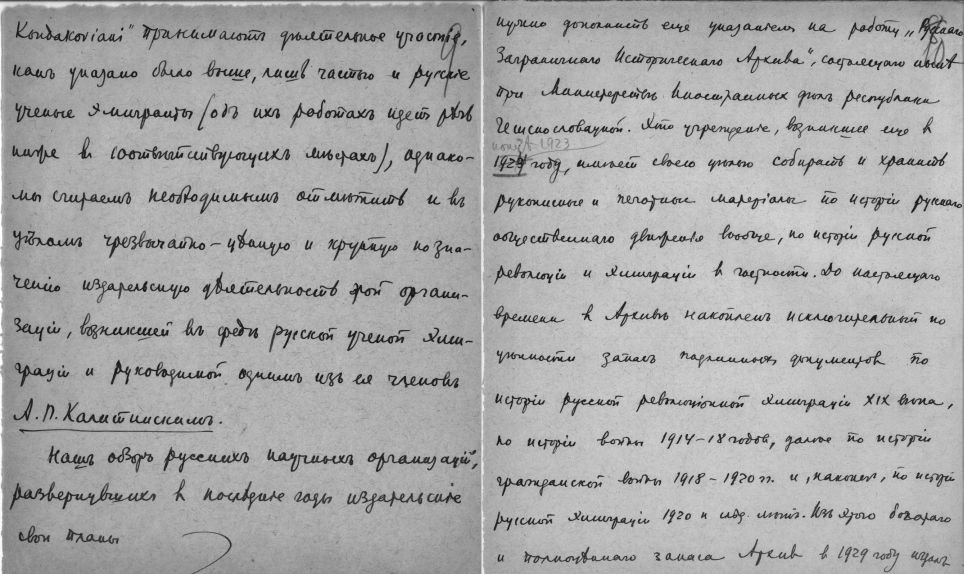 Kondakoviani" принимаютъ дѣятельное участіе,
какъ указано было выше, лишь частью и русскіе
ученые эмигранты (объ ихъ работахъ идетъ рѣчь
ниже в соотвѣтствующихъ мѣстахъ), однако-
мы считаемъ необходимымъ отмѣтить и въ
цѣломъ чрезвычайно-цѣнную и крупную по зна-
ченію издательскую дѣятельность этой органи-
заціи, возникшей въ средѣ русской ученой эми-
граціи и руководимой однимъ изъ ея членовъ
А. П. Калитинскимъ.
Нашъ обзоръ русскихъ научныхъ организацій,
развернувшихъ в послѣдніе годы издательскіе
свои планы
нужно дополнить еще указаніемъ на работу „Русскаго
Заграничнаго Историческаго Архива", состоящаго нынѣ
при Министерствѣ Иностранныхъ дѣлъ республики
Чешскословацкой. Это учрежденіе, возникшее еще в
1923
году, имѣетъ своею цѣлью собирать и хранить
рукописные и печатные матеріалы по исторіи русскаго
общественнаго движенія вообще, по исторіи русской
революціи и эмиграціи в частности. До настоящаго
времени в Архивѣ накопленъ исключительный по
цѣнности запасъ подлинныхъ документовъ по
исторіи русской революціонной эмиграціи XIX вѣка,
по исторіи войны 1914-18 годовъ, далѣе по исторіи
гражданской войны 1918-1920 гг. и, наконецъ, по исторіи
русской эмиграціи 1920 и слѣд. лѣтъ. Изъ этого богатаго
и полноцѣннаго запаса Архив в 1929 году издалъ